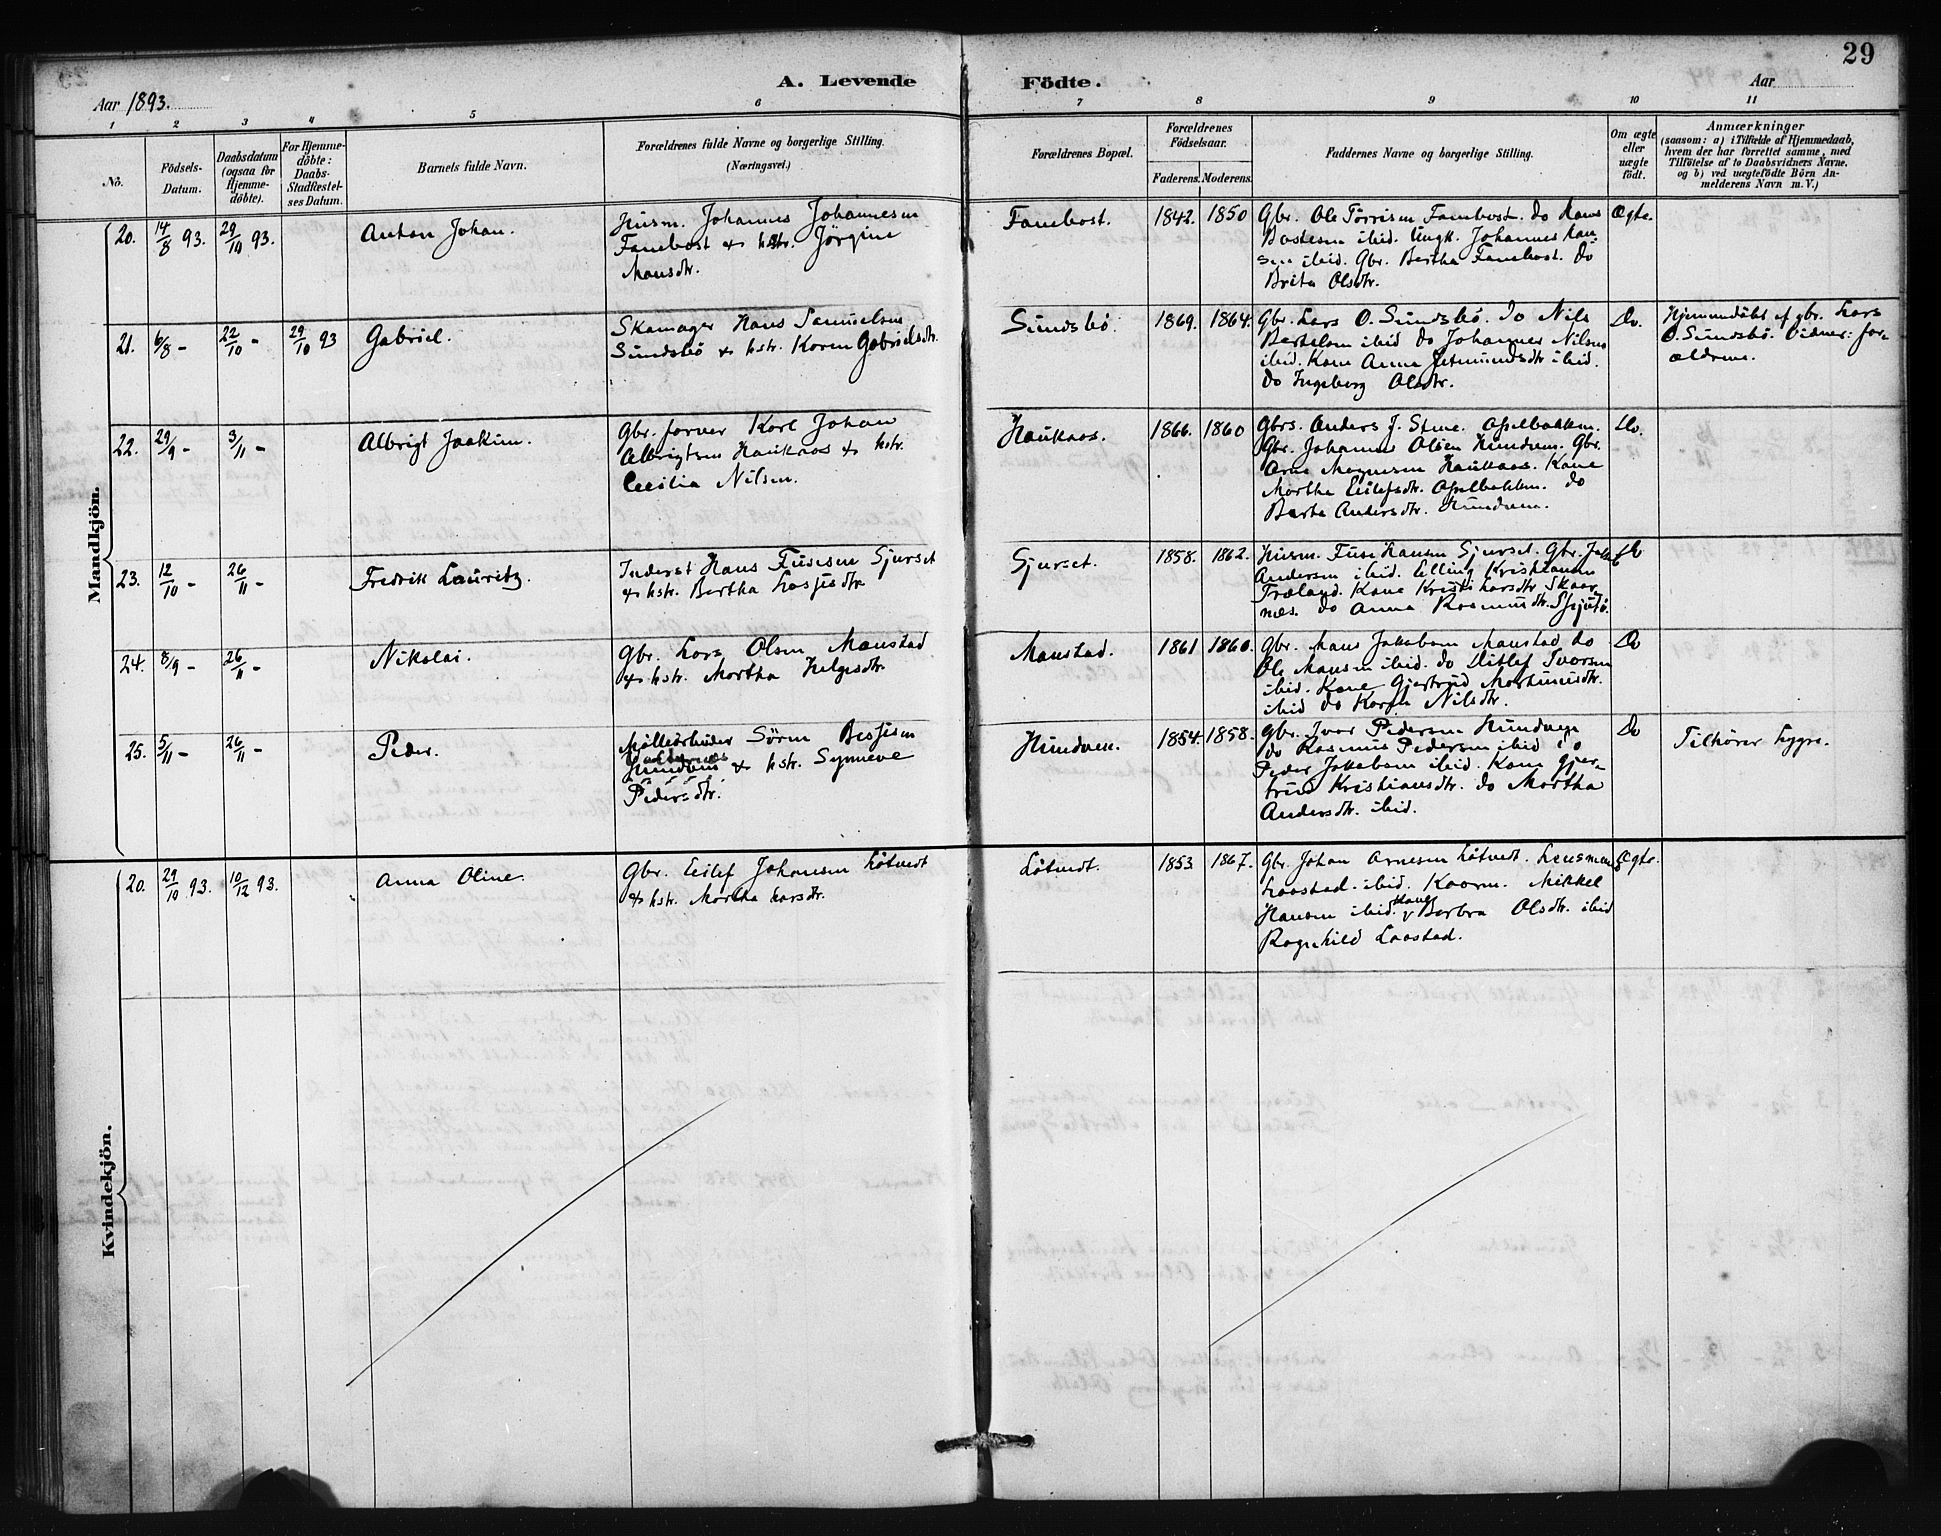 29
A. Levende Födte.
Aar 1893.
Aar
1 2 3 4 5 6 7 8 9 10 11
No.
Födsels-
Datum.
Daabsdatum
(ogsaa for
Hjemme-
döbte).
For Hjemme-
döbte:
Daabs-
Stadfæstel-
ses Datum.
Barnets fulde Navn.
Forældrenes fulde Navne og borgerlige Stilling.
(Næringsvei.)
Forældrenes Bopæl.
Forældrenes
Födselsaar.
Faderens. Moderens.
Faddernes Navne og borgerlige Stilling.
Om ægte
eller
uægte
födt.
Anmærkninger
(saasom: a) i Tilfælde af Hjemmedaab,
hvem der har forrettet samme, med
Tilföielse af to Daabsvidners Navne,
og b) ved uægtefödte Börn An-
melderens Navn m. V.)
Mandkjön.
20. 14/8 93. 29/10 93.
Anton Johan.
Husm. Johannes Johannesen
Fanebost & hstr. Jørgine
Mansdtr.
Fanebost.
1842. 1850
Gbr. Ole Tørrisen Fanebost. do Hans
Bastesen ibid. Ungk. Johannes Han-
sen ibid. Gbr. Bertha Fanebost. do
Brita Olsdtr.
Ægte.
21. 6/8 - 22/10 - 29/10 93
Gabriel.
Skomager Hans Samuelsen
Sundsbö & hstr. Karen Gabrielsdtr.
Sundsbö.
1869. 1864.
Gbr. Lars O. Sundsbö. do Nils
Bertelsen ibid do Johannes Nilsen
ibid. Kone Anna Jetmundsdtr ibid.
do Ingeborg Olsdtr.
Do.
Hjemmedöbt af gbr. Lars
O. Sundsbö. Vidner: for-
ældrene.
22. 29/9 - 3/11 -
Albrigt Joakim.
Gbr. farver Karl Johan
Albrigtsen Haukaas & hstr.
Cecilia Nilsen.
Haukaas.
1866. 1860
Gbrs. Anders J. Stene. Apelbakken.
Gbr. Johannes Olsen Hundven. Gbr.
Arne Mognesen Haukaas. Kone
Martha Eilefsdtr. Apelbakken. do
Berte Andersdtr. Hundven.
Do.
23. 12/10 - 26/11 -
Fredrik Lauritz.
Inderst Hans Fusesen Sjurset
& hstr. Bertha Lassesdtr.
Sjurset.
1858. 1862.
Husm. Fuse Hansen Sjurset. Gbr.
Andersen ibid. Elling Kristiansen
Træland. Kone Kristi Larsdtr Skaar-
næs. do Anna Rasmusdtr.
do
24. 8/9 - 26/11 -
Nikolai.
Gbr. Lars Olsen Manstad
& hstr. Martha Helgesdtr.
Manstad.
1861 1860.
Gbr. Mans Jakobsen Manstad do
Ole Mansen ibid. do Ditlef Ivarsen
ibid. Kone Gjertrud Martinusdtr.
ibid do Karen Nilsdtr.
Do
25. 5/11 - 26/11 -
Peder.
Møllearbeider Sören
Hundven & hstr. Synneve
Pedersdtr.
Hundven.
1854. 1858.
Gbr. Ivar Pedersen Hundven
do Rasmus Pedersen ibid do
Peder Jakobsen ibid. Kone Gjer-
trud Kristiansdtr. do Martha
Andersdtr. ibid.
Do
Tilhører Lygre.
Kvindekjön.
20. 29/10 93. 10/12 93.
Anna Oline.
Gbr. Eilef Johansen Løtvedt
& hstr. Martha Larsdtr.
Løtvedt.
1853 1867.
Gbr. Johan Arnesen Løtvedt. Lensmand
Laastad. ibid. Kaarm. Mikkel
Hansen ibid. Kone Barbra Olsdtr. ibid
Ragnhild Laastad.
Ægte.